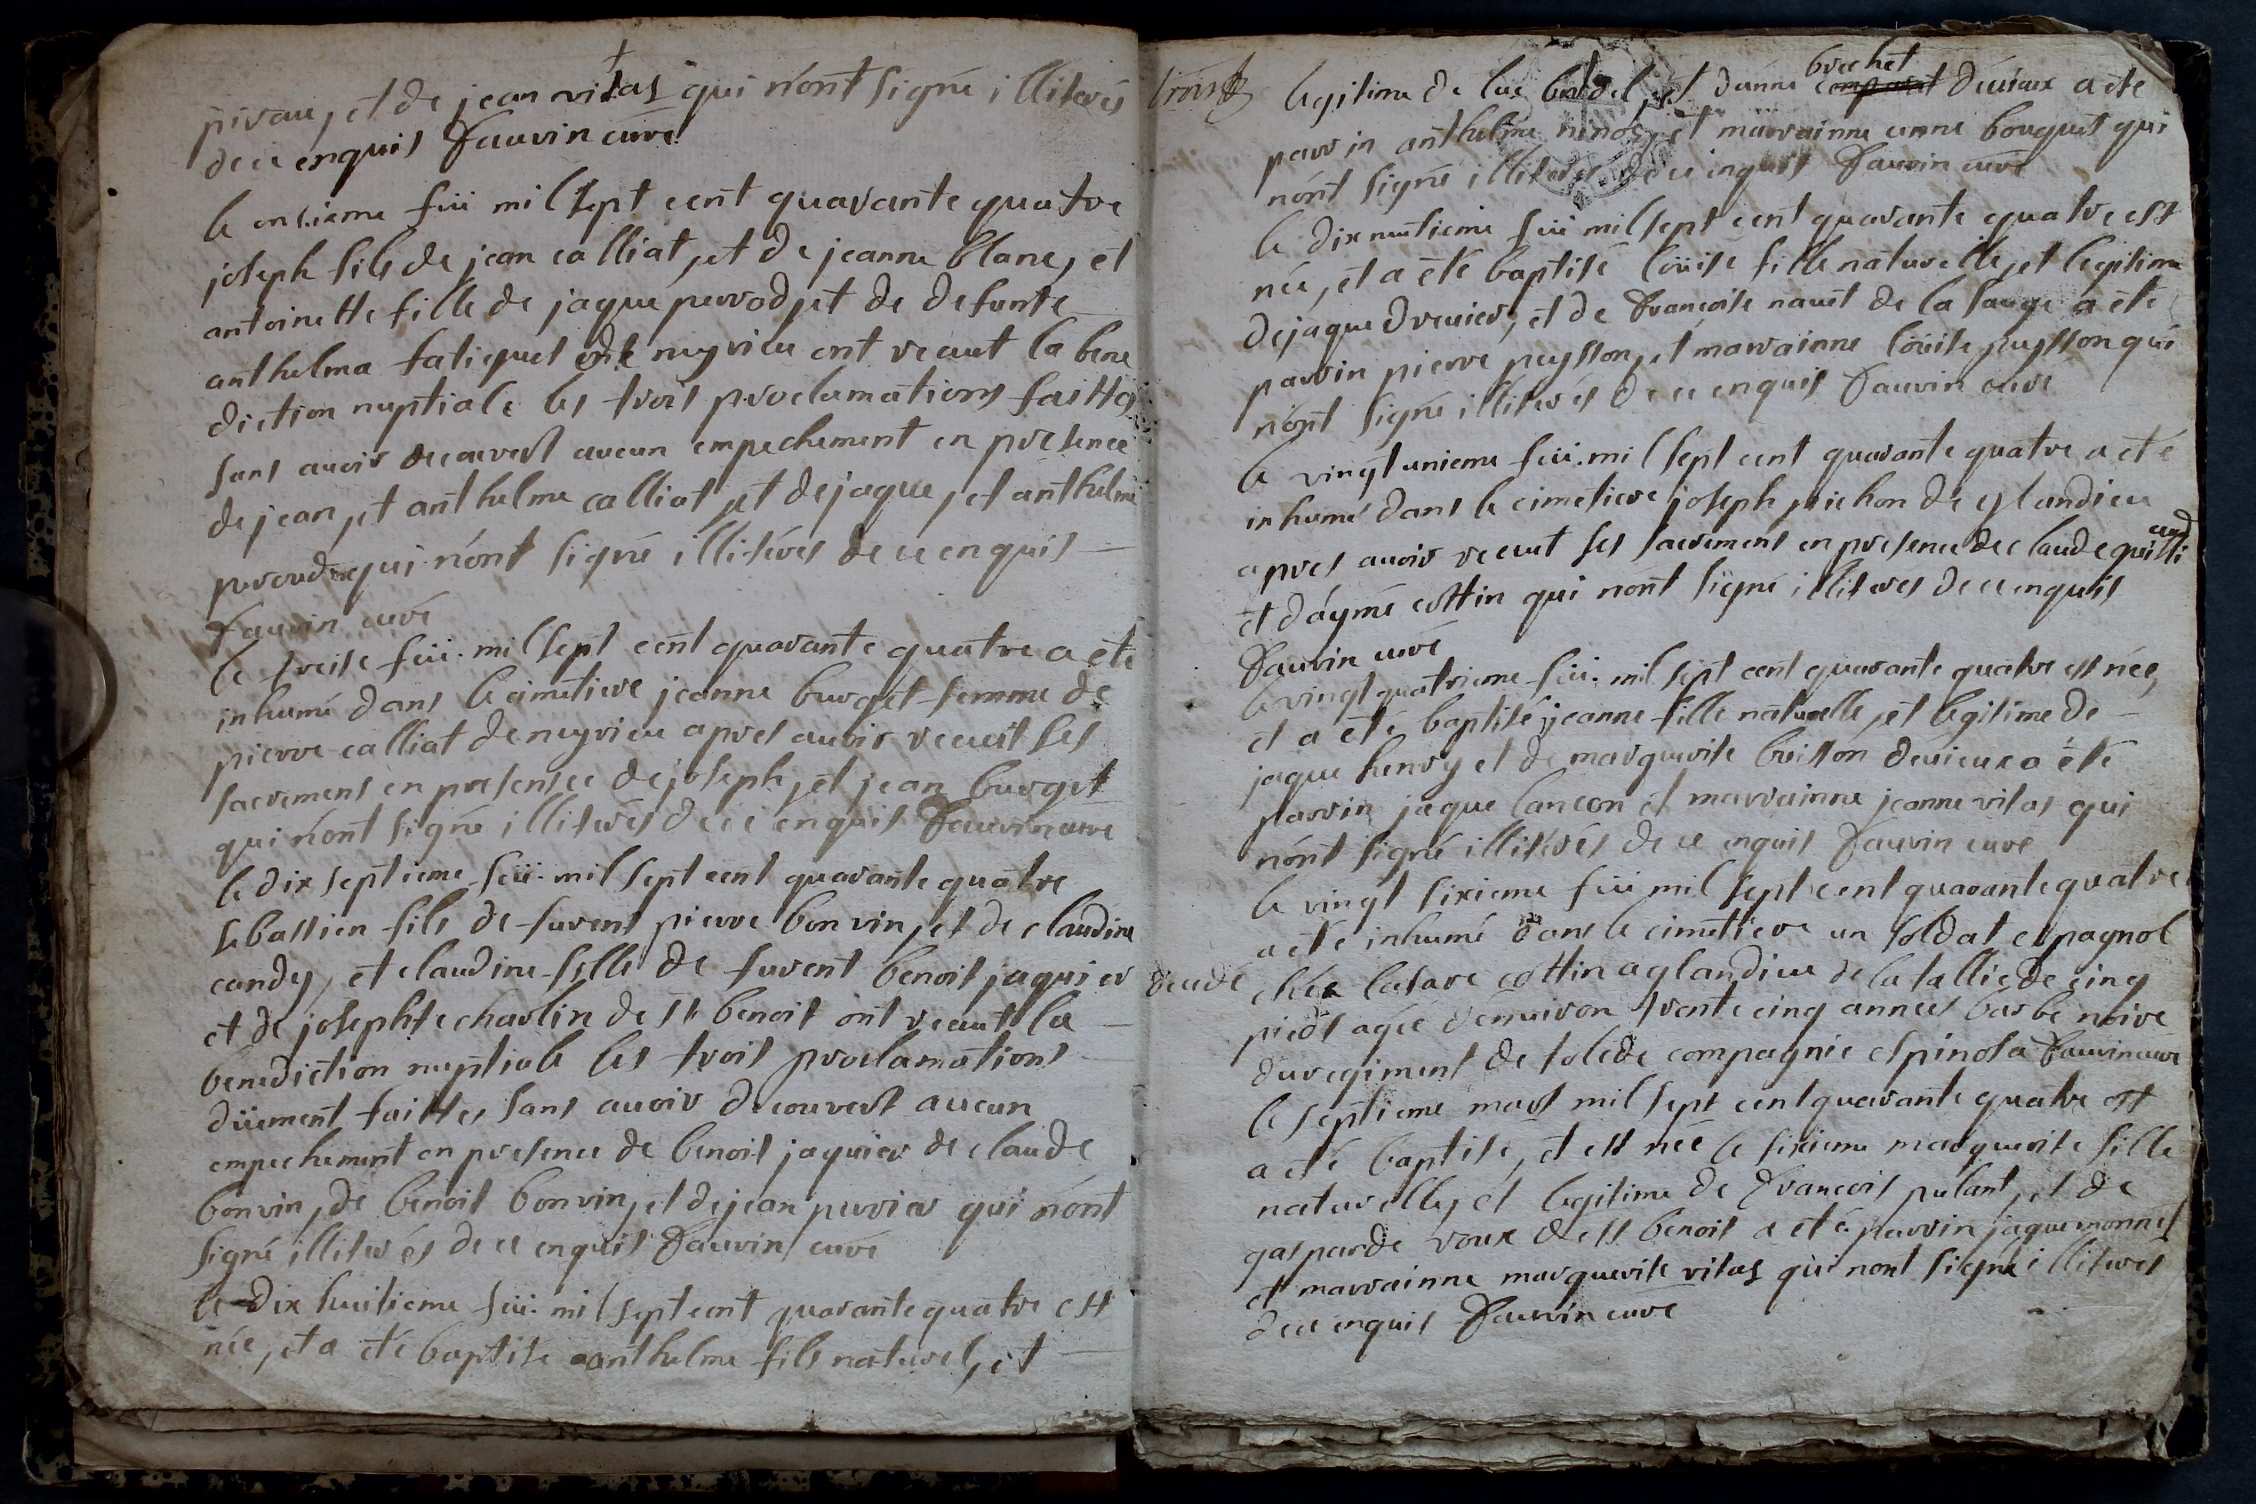 pivau, et de jean vitas qui n'ont signé illiterés
de ce enquis Fauvin curé
le onsieme fiü mil sept cent quarante quatre
joseph fils de jean calliat, et de jeanne blanc, et
antoinette fille de jaque perrod, et de defunte
anthelma fatiquet de nuyrieu ont receut la bene
diction nuptiale les trois proclamations faittes
sans avoir decouvert aucun empechement en presence
de jean, et anthelme calliat, et de jaque, et anthelme
perroud qui n'ont signé illiterés de ce enquis
Fauvin curé
le treise fiü. mil sept cent quarante quatre a eté
inhumé dans le cimetiere jeanne burget femme de
pierre calliat de nuyrieu apres auoir receut ses
sacremens en presensce de joseph, et jean burget
qui n'ont signé illiterés de ce enquis Fauvin curé
le dix septieme fiü. mil sept cent quarante quatre
sebastien fils de furent pierre bonvin, et de claudine
candy, et claudine fille de furent benoit jaquier
et de josephte charlin de st benoit ont receut la
benediction nuptiale les trois proclamations
düement faittes sans auoir decouvert aucun
empechement en presence de benoit jaquier de claude
bonvin, de benoit bonvin, et de jean perrier qui n'ont
signé illiterés de ce enquis Fauvin curé
le dix huitieme fiü. mil sept cent quarante quatre est
née, et a eté baptisé anthelme fils naturel, et
trois
brechet
legitime de luc et d'anne d'eurieux a eté
parrin anthelme et marrainne anne bouquet qui
n'ont signé illiterés de ce enquis Fauvin curé
le dix neutieme fiü mil sept cent quarante quatre est
née, et a eté baptisé loüise fille naturelle, et legitime
de jaque drevier, et de françoise navet de la sauge a eté
parrin pierre peysson, et marrainne loüise peysson qui
n'ont signé illiterés de ce enquis Fauvin curé
le vingt unieme fiü. mil sept cent quarante quatre a eté
inhumé dans le cimetiere joseph pichon de glandieu
apres auoir receut ses sacremens en presence de claude
et d'aymé cottin qui n'ont signé illiterés de ce enquis
Fauvin curé
le vingt quatrieme fiü. mil sept cent quarante quatre est née,
et a eté baptisé jeanne fille naturelle, et legitime de
jaque henry et de marguerite buisson deurieux a eté
parrin jaque lancon et marrainne jeanne vitas qui
n'ont signé illiterés de ce enquis Fauvin curé
le vingt sixieme fiü mil sept cent quarante quatre
a eté inhumé dans le cimetiere un soldat espagnol
decedé chez lasare cottin a glandieu de la tallie de cinq
pieds agée d'enuiron trente cinq années barbe noire
du regiment de tolede compagnie espinosa Fauvin curé
le septieme mars mil sept cent quarante quatre est
a eté baptisé, et est née le sixieme marguerite fille
naturelle, et legitime de françois pulant, et de
gasparde roux de st benoit a eté parrin jaque monnet
et marrainne marguerite vitas qui n'ont signé illiterés
de ce enquis Fauvin curé